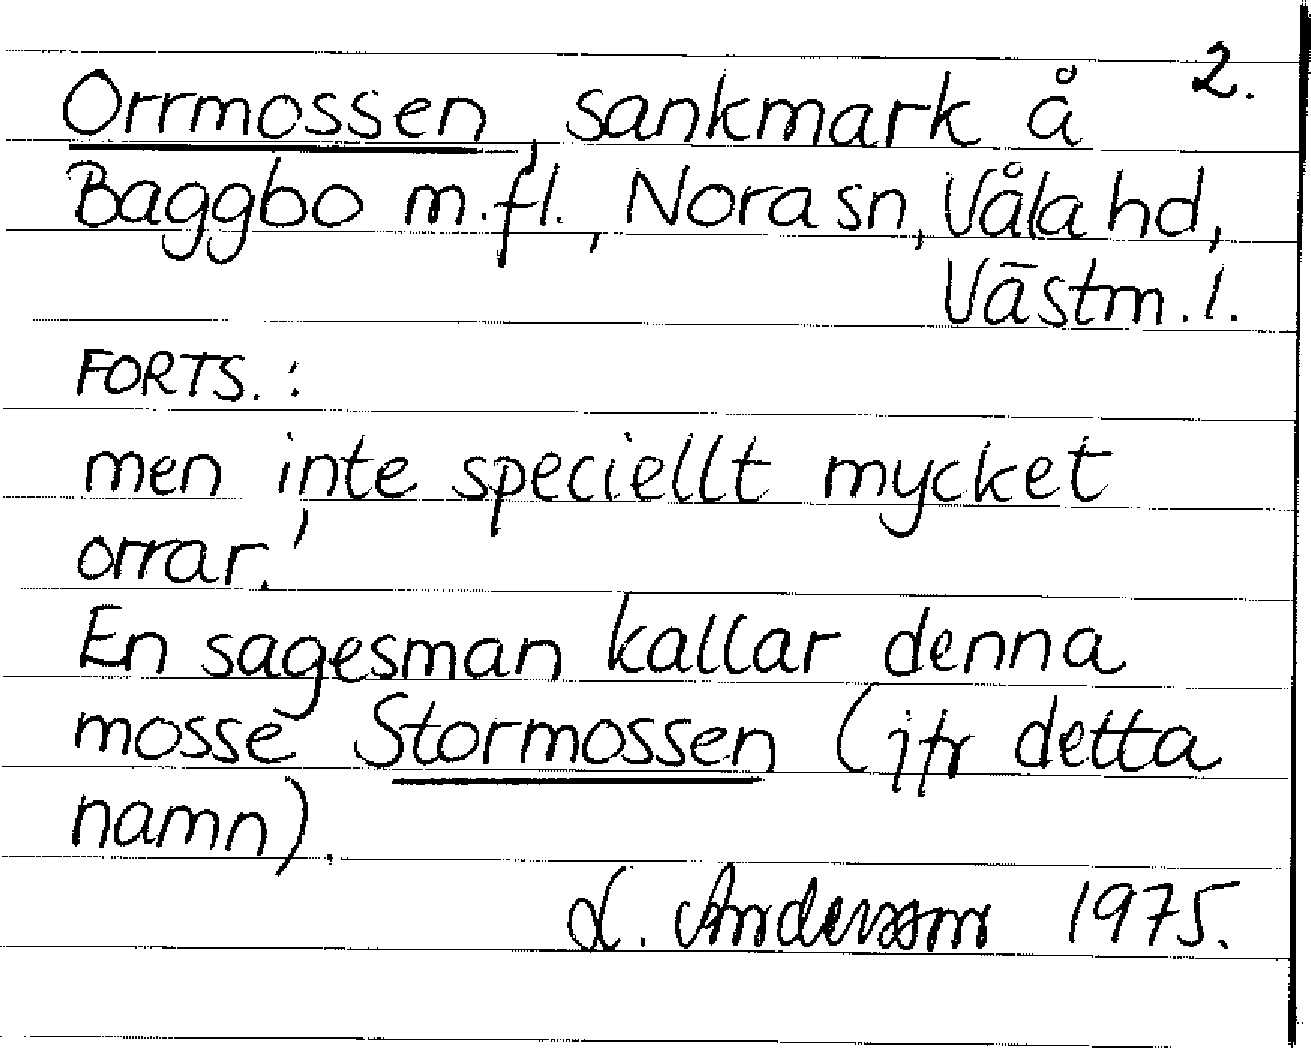 2.
Orrmossen, sankmark å
Baggbo m.fl., Nora sn, Våla hd,
Västm. l.
FORTS. :
men inte speciellt mycket
orrar.'
En sagesman kallar denna
mosse Stormossen (jfr detta
namn).
L. Andersson 1975.